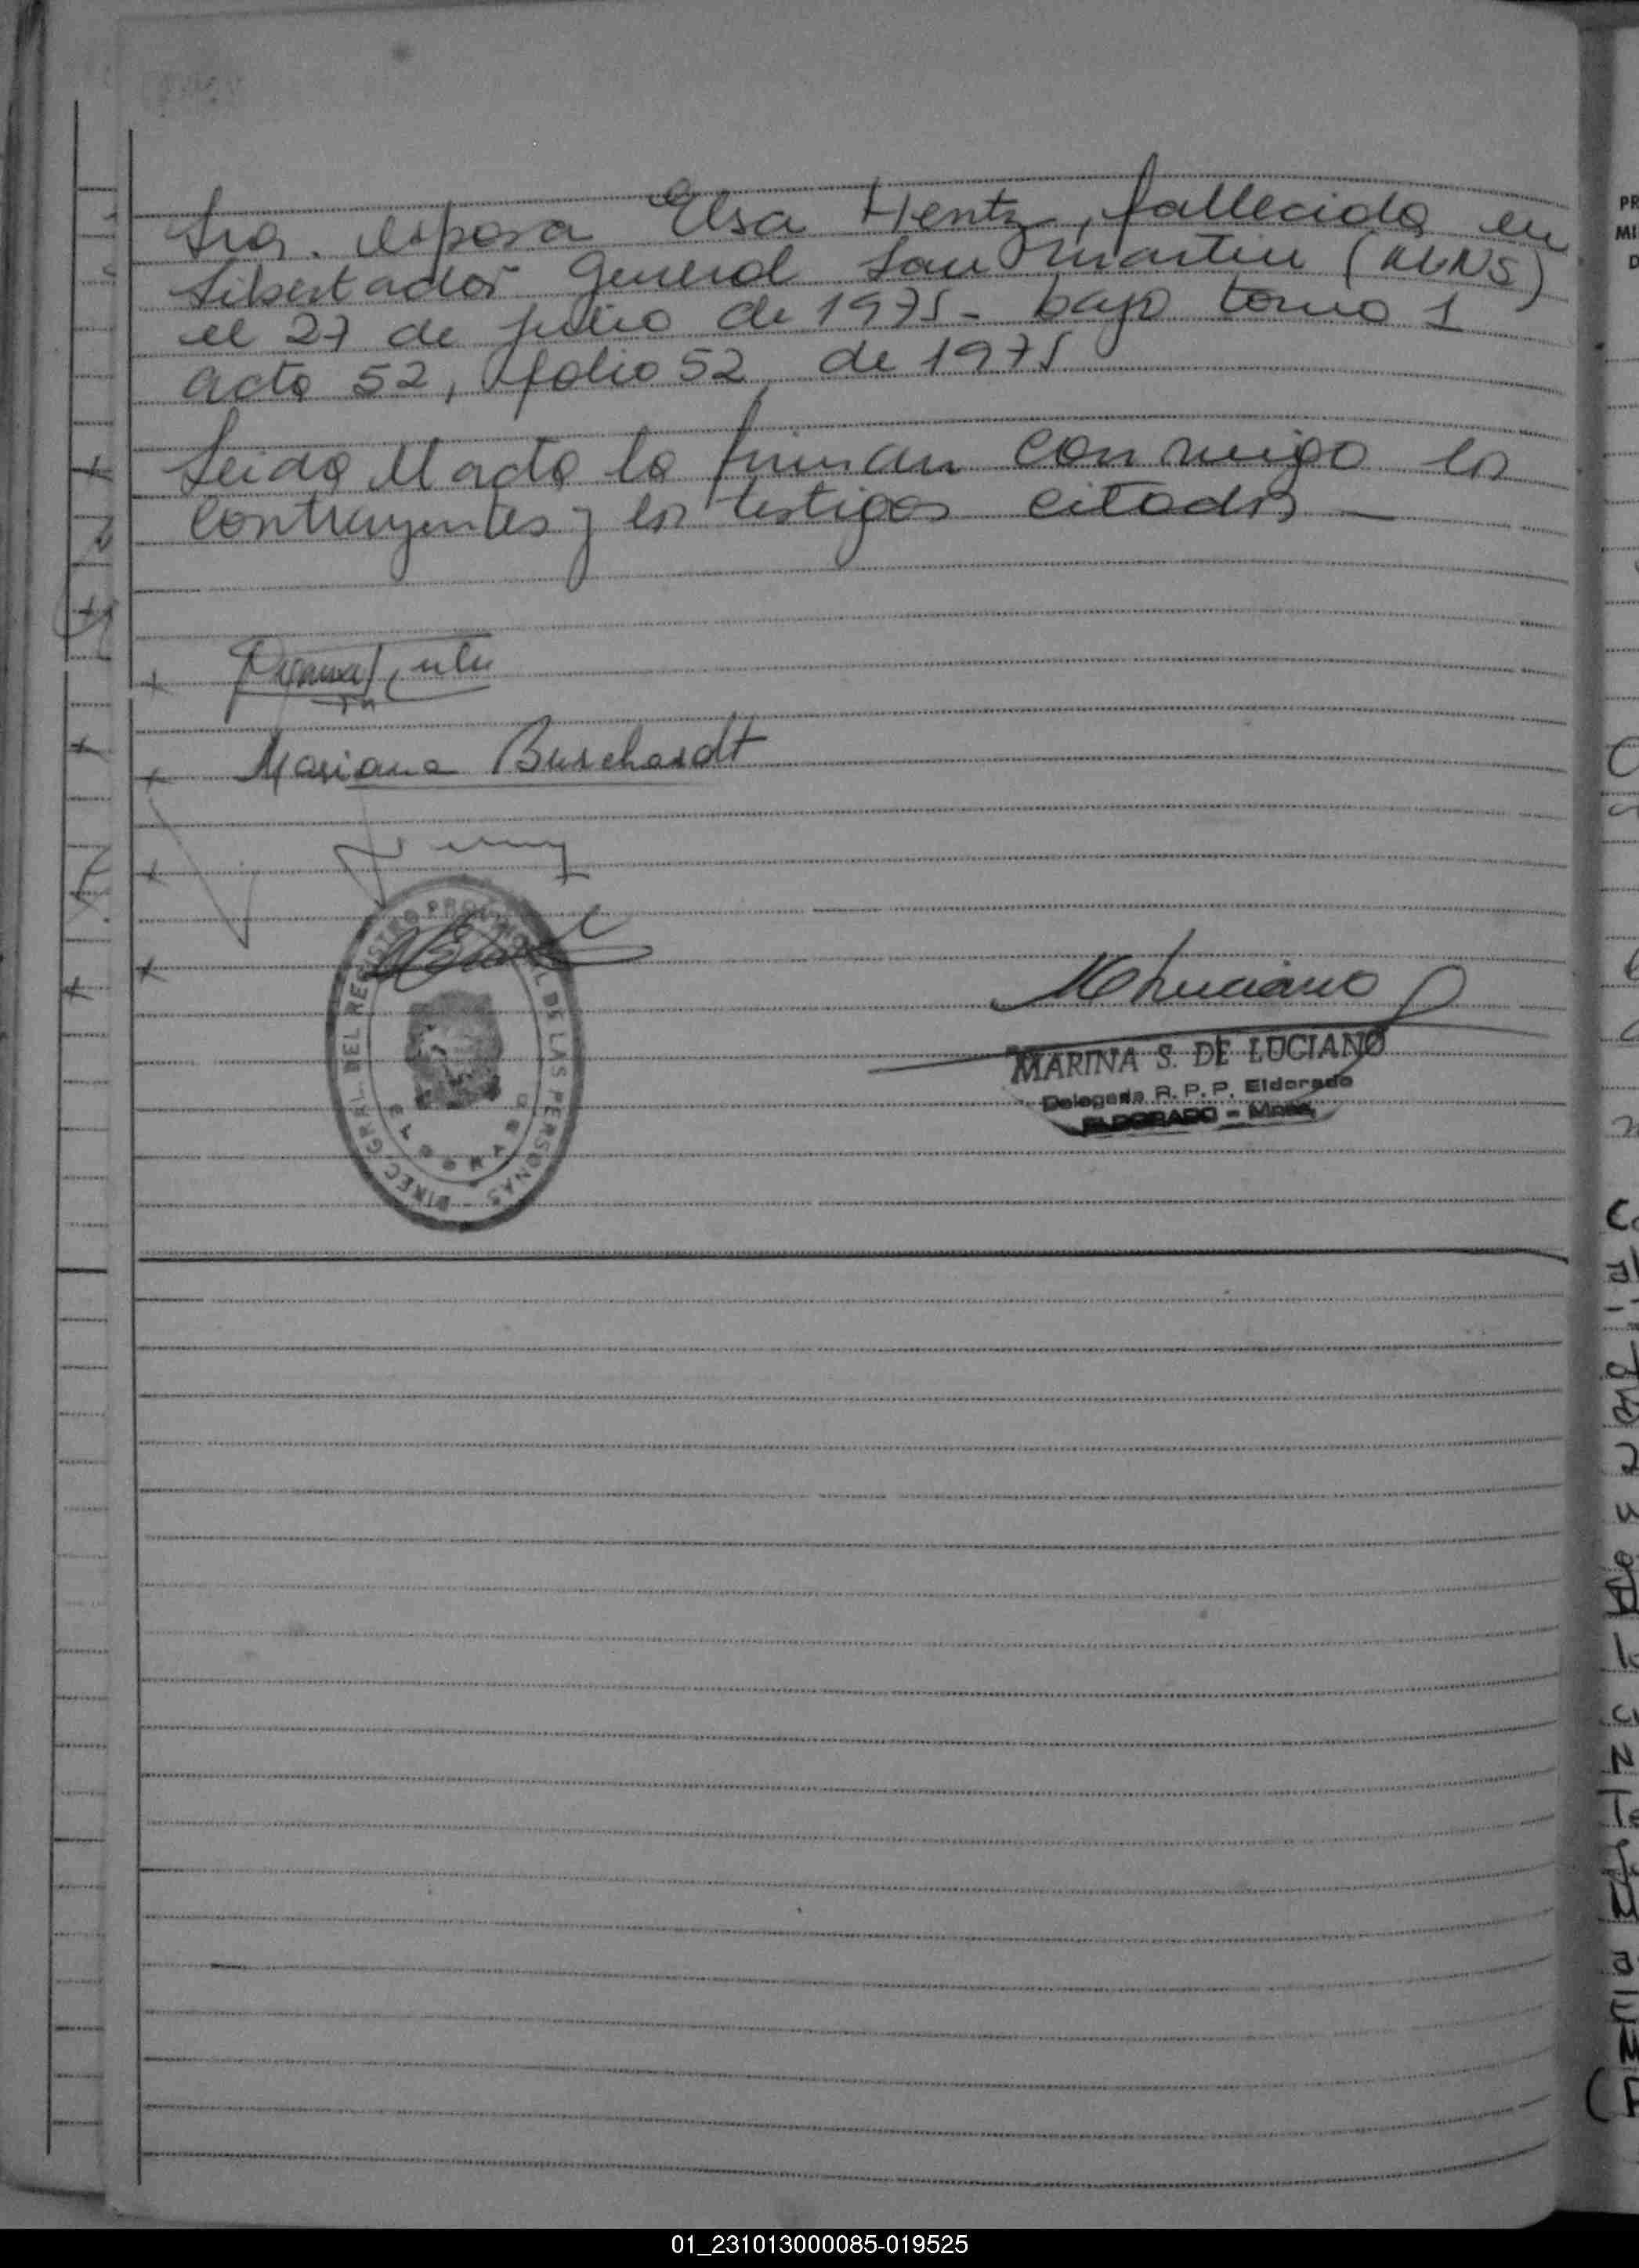 Sra. esposa Elsa Hentz, fallecida en
Libertador General San Martin (MNS)
el 27 de julio de 1975 - bajo tomo 1
acta 52, folio 52, de 1975
Leida el acta la firman conmigo los
contrayentes y los testigos citados -
Mariana Burchardt
MLuciano
MARINA S. DE LUCIANO
Delegada R. P. P. Eldorado
ELDORADO - Mnes.
DIREC. GRL. DEL REGISTRO PROVINCIAL DE LAS PERSONAS
01_231013000085-019525